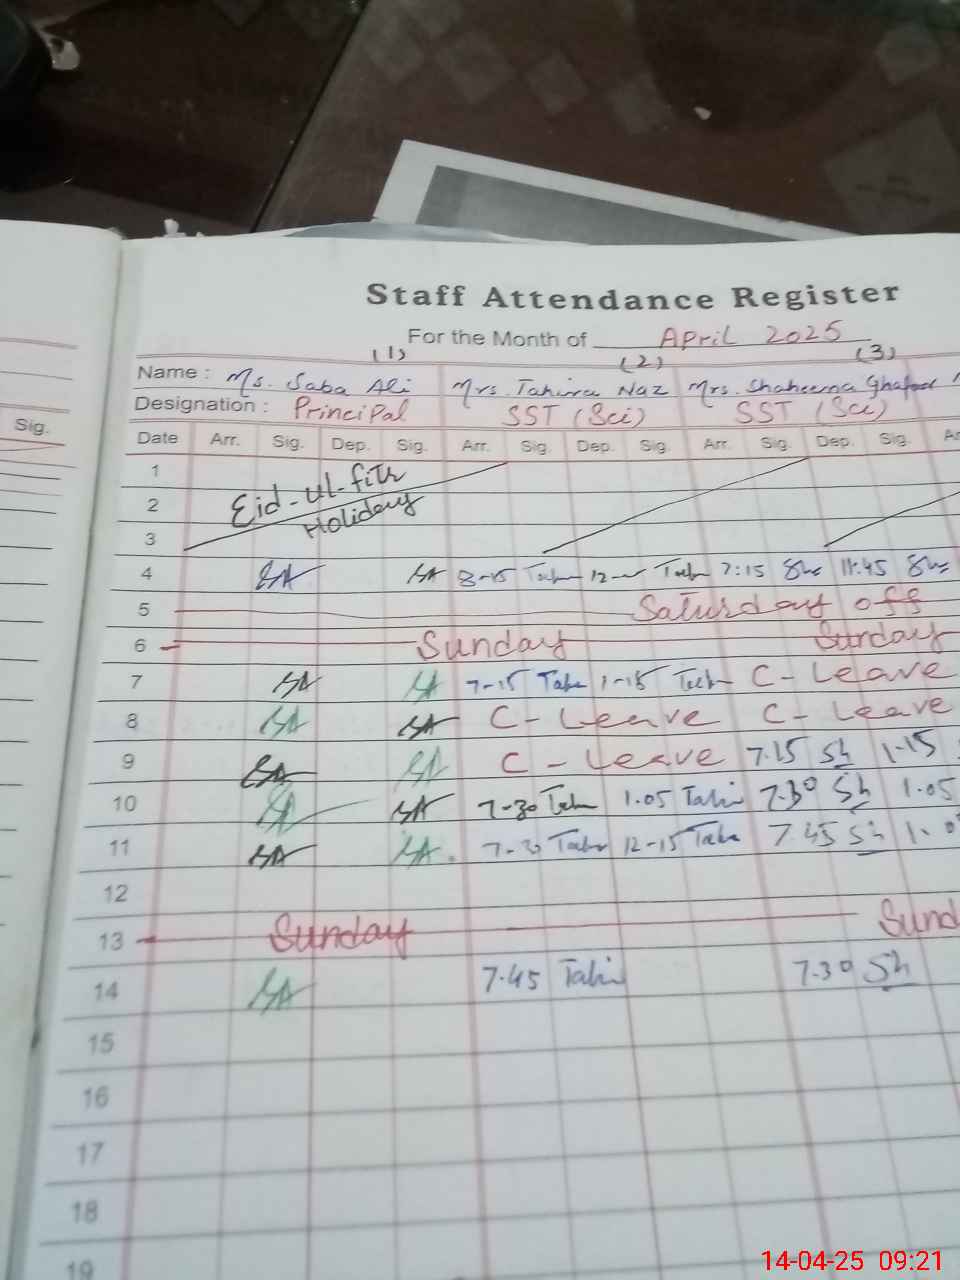 Staff Attendance Register
For the Month of April 2025
(1) (2) (3)
Name : Ms. Saba Ali Mrs. Tahira Naz Mrs. Shaheena Ghafoor
Designation : Principal SST (Sci) SST (Sci)
Sig.
Date Arr. Sig. Dep. Sig. Arr. Sig. Dep. Sig. Arr. Sig. Dep. Sig. Arr
1 Eid-ul-fitr
2 Holiday
3
4 SA SA 8-15 12 7:15 She 11:45 She
5 Saturday off
6 Sunday Sunday
7 SA SA 7-15 Tahi 1-15 C-Leave
8 SA SA C-Leave C-Leave
9 SA SA C-Leave 7.15 Sh 1-15
10 SA SA 7-30 Tahi 1.05 Tahi 7.30 Sh 1.05
11 SA SA. 7-30 Tahi 12-15 Tahi 7.45 Sh
12
13 Sunday Sund
14 SA 7.45 Tahi 7.30 Sh
15
16
17
18
19
14-04-25 09:21